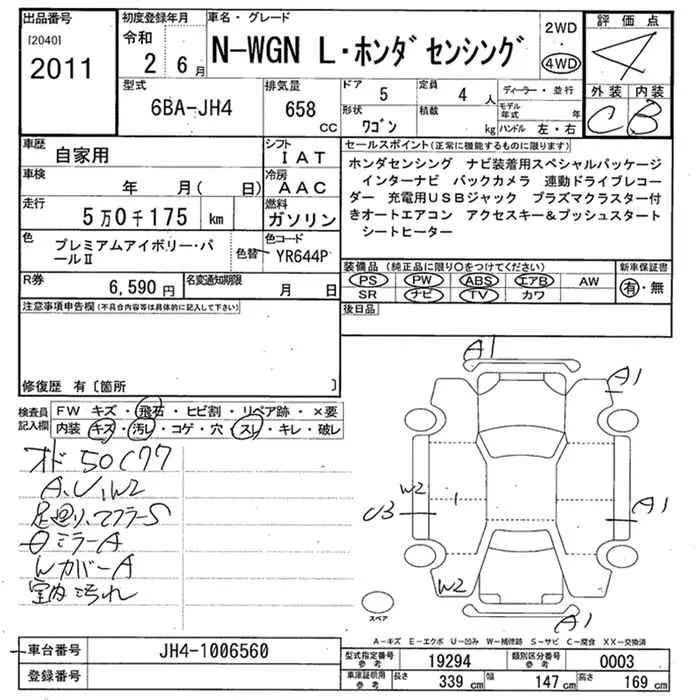 出品番号
[2040]
2011
初度登録年月
令和
2 6月
車名・グレード
N-WGN L・ホンダセンシング
2WD
・
4WD
評価点
4
外装 内装
C B
型式
6BA-JH4
排気量
658 CC
ドア
5
定員
4 人
形状
ワゴン
積載
kg
ディーラー・並行
モデル年式 年
ハンドル 左・右
車歴
自家用
シフト
IAT
車検
年 月( 日)
冷房
AAC
走行
5万0千175 km
燃料
ガソリン
色
プレミアムアイボリー・パールⅡ
色替
色コード
YR644P
R券
6,590 円
名変通知期限
月 日
セールスポイント(正常に機能するものに限ります)
ホンダセンシング ナビ装着用スペシャルパッケージ
インターナビ バックカメラ 連動ドライブレコー
ダー 充電用USBジャック プラズマクラスター付
きオートエアコン アクセスキー&プッシュスタート
シートヒーター
装備品(純正品に限り○をつけてください)
PS PW ABS エアB AW
SR ナビ TV カワ
新車保証書
有・無
後日品
注意事項申告欄(不具合内容等は具体的に記入して下さい)
修復歴 有〔箇所 〕
検査員記入欄
FW キズ・飛石・ヒビ割・リペア跡・×要
内装 キズ・汚レ・コゲ・穴・スレ・キレ・破レ
オド50177
A、U、W2
足廻り、マフラーS
ミラーA
WカバーA
室内汚れ
A1
A1
W2
U3
A1
W2
A1
スペア
A−キズ E−エクボ U−凹み W−補修跡 S−サビ C−腐食 XX−交換済
車台番号
JH4-1006560
登録番号
型式指定番号 参考
19294
類別区分番号 参考
0003
車庫証明用 参考
長さ 339 cm
幅 147 cm
高さ 169 cm